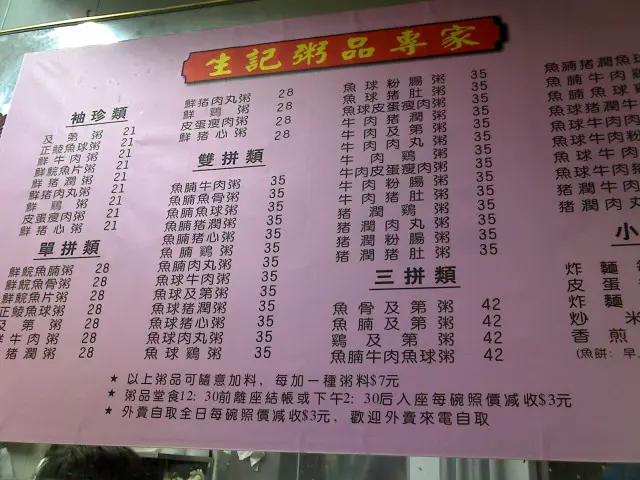 生記粥品專家
袖珍類
及第粥 21
正鯪魚球粥 21
鮮牛肉粥 21
鮮鯇魚片粥 21
鮮豬潤粥 21
鮮豬肉丸粥 21
鮮鷄粥 21
皮蛋瘦肉粥 21
鮮豬心粥 21
單拼類
鮮鯇魚腩粥 28
鮮鯇魚骨粥 28
鮮鯇魚片粥 28
正鯪魚球粥 28
及第粥 28
牛肉粥 28
豬潤粥 28
鮮豬肉丸粥 28
鮮鷄粥 28
皮蛋瘦肉粥 28
鮮豬心粥 28
雙拼類
魚腩牛肉粥 35
魚腩魚骨粥 35
魚腩魚球粥 35
魚腩豬潤粥 35
魚腩豬心粥 35
魚腩鷄粥 35
魚腩肉丸粥 35
魚球牛肉粥 35
魚球及第粥 35
魚球豬潤粥 35
魚球豬心粥 35
魚球肉丸粥 35
魚球鷄粥 35
魚球粉腸粥 35
魚球豬肚粥 35
魚球皮蛋瘦肉粥 35
牛肉豬潤粥 35
牛肉及第粥 35
牛肉肉丸粥 35
牛肉鷄粥 35
牛肉皮蛋瘦肉粥 35
牛肉粉腸粥 35
牛肉豬肚粥 35
豬潤鷄粥 35
豬潤肉丸粥 35
豬潤粉腸粥 35
豬潤豬肚粥 35
三拼類
魚骨及第粥 42
魚腩及第粥 42
鷄及第粥 42
魚腩牛肉魚球粥 42
魚腩豬潤肉
魚腩牛肉
魚腩魚球
魚球豬潤牛
魚球牛肉
魚球牛肉粉
魚球牛肉
豬潤牛肉
豬潤肉丸
小
炸麵
皮蛋
炸麵
炒米
香煎
(魚餅:早
★ 以上粥品可隨意加料，每加一種粥料$7元
★ 粥品堂食12:30前離座結帳或下午2:30后入座每碗照價減收$3元
★ 外賣自取全日每碗照價減收$3元，歡迎外賣來電自取